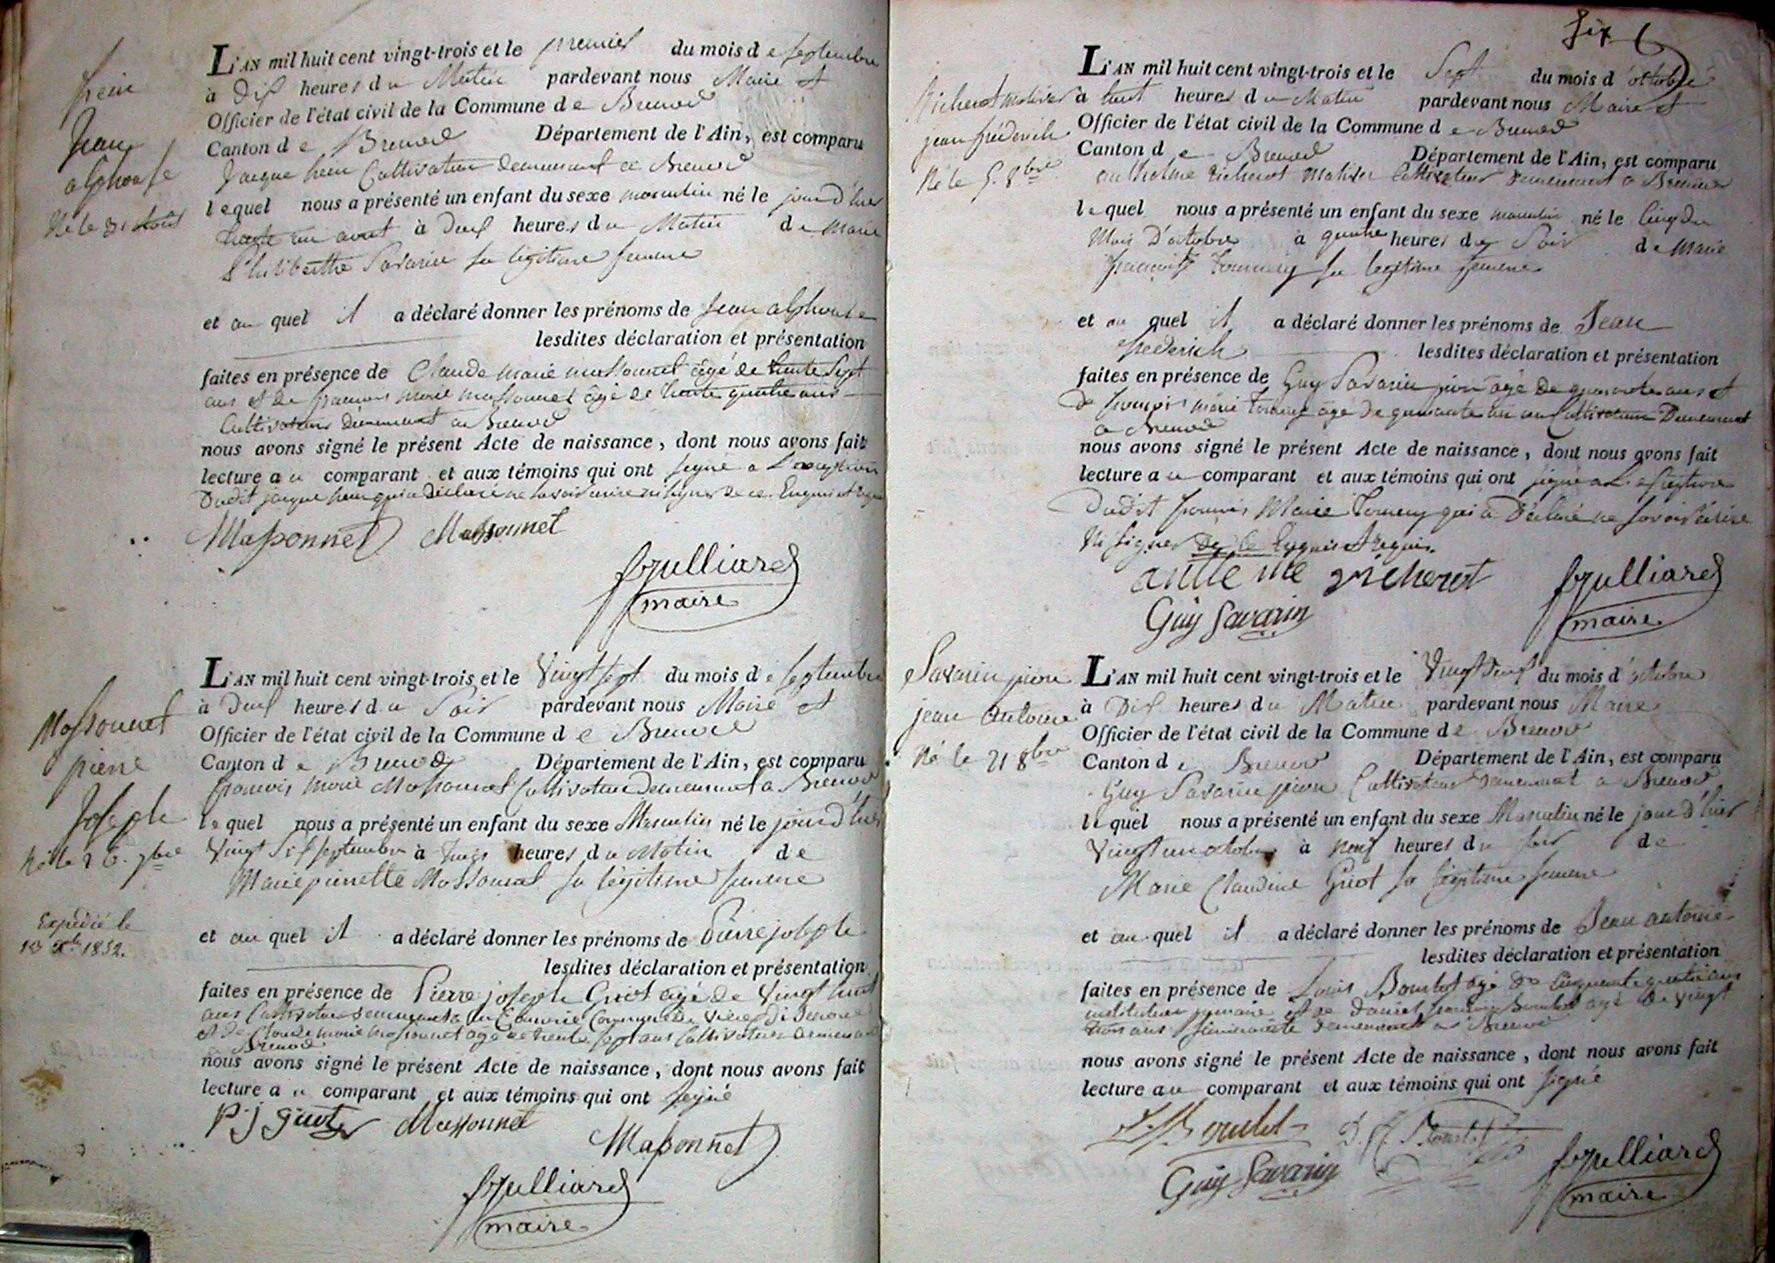 Jean
alphonse
Né le 31 Août
L'AN mil huit cent vingt-trois et le premier du mois de Septembre
à Dix heures du Matin pardevant nous Maire et
Officier de l'état civil de la Commune de Brenod
Canton de Brenod Département de l'Ain, est comparu
Jacque Cultivateur demeurant a Brenod
lequel nous a présenté un enfant du sexe masculin né le jour d'hier
trente un aout à Deux heures du Matin de Marie
Philiberthe Savarin sa légitime femme
et au quel il a déclaré donner les prénoms de Jean alphonse
lesdites déclaration et présentation
faites en présence de Claude marie massonnet âgé de trente Sept
ans et de francois marie massonnet âgé de trente quatre ans
Cultivateurs demeurant a Brenod
nous avons signé le présent Acte de naissance, dont nous avons fait
lecture au comparant et aux témoins qui ont signé a L'exception
Dudit jacque qui a Déclaré ne savoir écrire ni signer de ce Enquis et requis
Massonnet Massonnet
Julliard
maire
Massonnet
pierre
Joseph
Né le 26 7bre
Expédié le
1852.
L'AN mil huit cent vingt-trois et le Vingt sept du mois de Septembre
à Deux heures du Soir pardevant nous Maire et
Officier de l'état civil de la Commune de Brenod
Canton de Brenod Département de l'Ain, est comparu
francois marie Massonnet Cultivateur demeurant a Brenod
lequel nous a présenté un enfant du sexe Masculin né le jour d'hier
Vingt Six septembre à heures du Matin de
Marie pierrette Massonnet sa légitime femme
et au quel il a déclaré donner les prénoms de Pierre joseph
lesdites déclaration et présentation
faites en présence de Pierre joseph Griot âgé de Vingt huit
ans Cultivateur demeurant Commune de Vieu
et de Claude marie massonnet âgé de trente sept ans Cultivateur demeurant a
Brenod
nous avons signé le présent Acte de naissance, dont nous avons fait
lecture au comparant et aux témoins qui ont signé
P j griot Massonnet
Massonnet
Julliard
maire
Six 6
Richerot
jean fréderich
Né le 5. 8bre
L'AN mil huit cent vingt-trois et le Sept du mois d'octobre
à huit heures du Matin pardevant nous Maire et
Officier de l'état civil de la Commune de Brenod
Canton de Brenod Département de l'Ain, est comparu
anthelme richerot Cultivateur demeurant a Brenod
lequel nous a présenté un enfant du sexe masculin né le Cinq du
Mois D'octobre à quatre heures du Soir de Marie
sa légitime femme
et au quel il a déclaré donner les prénoms de Jean
frederich lesdites déclaration et présentation
faites en présence de Guy Savarin pion âgé de quarante ans et
de francois marie âgé de quarante un an Cultivateurs Demeurant
a Brenod
nous avons signé le présent Acte de naissance, dont nous avons fait
lecture au comparant et aux témoins qui ont signé a L'exception
Dudit francois Marie qui a Déclaré ne savoir écrire
Ni signer De ce Enquis et requis.
antelme richerot
Guy Savarin
Julliard
maire
Savarin pion
jean antoine
Né le 21 8bre
L'AN mil huit cent vingt-trois et le Vingt deux du mois d'octobre
à Dix heures du Matin pardevant nous Maire
Officier de l'état civil de la Commune de Brenod
Canton de Brenod Département de l'Ain, est comparu
Guy Savarin pion Cultivateur demeurant a Brenod
lequel nous a présenté un enfant du sexe Masculin né le jour d'hier
Vingt un octobre à neuf heures du soir de
Marie Claudine Griot sa légitime femme
et au quel il a déclaré donner les prénoms de Jean antoine
lesdites déclaration et présentation
faites en présence de Louis Bourlot âgé de Cinquante quatre ans
instituteur primaire et de francois Bourlot âgé de Vingt
trois ans demeurant a Brenod
nous avons signé le présent Acte de naissance, dont nous avons fait
lecture au comparant et aux témoins qui ont signé
Guy Savarin
Julliard
maire